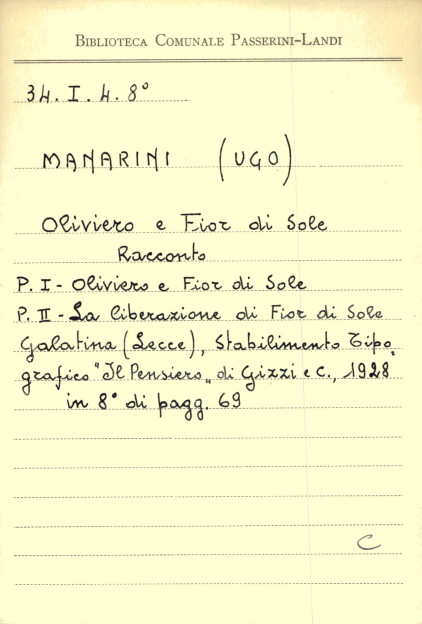 BIBLIOTECA COMUNALE PASSERINI-LANDI
34. I. 4. 8°
MANARINI (UGO)
Oliviero e Fior di Sole
Racconto
P. I - Oliviero e Fior di Sole
P. II - La liberazione di Fior di Sole
Galatina (Lecce), Stabilimento Tipo„
grafico "Il Pensiero„ di Gizzi e C., 1928
in 8° di pagg. 69
C